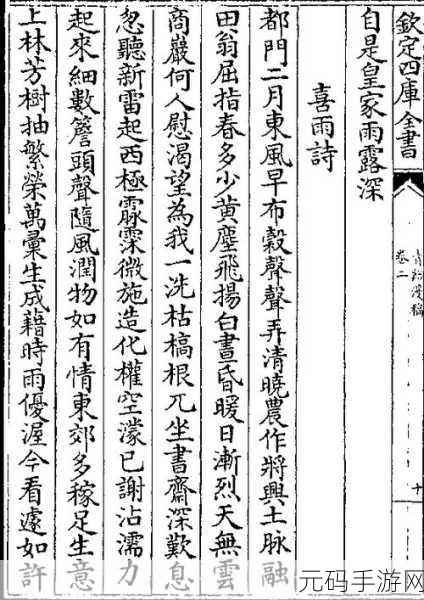 欽定四庫全書
青谿漫稿
卷二
十
自是皇家雨露深
喜雨詩
都門二月東風早布榖聲聲弄清曉農作將興土脉融
田翁屈指春多少黄塵飛揚白晝昏暖日漸烈天無雲
商巖何人慰渴望為我一洗枯槁根兀坐書齋深歎息
忽聽新雷起西極霢霂微施造化權空濛已謝沾濡力
起來細數簷頭聲隨風潤物如有情東郊多稼足生意
上林芳樹抽繁榮萬彙生成藉時雨優渥今看遽如許
元码手游网